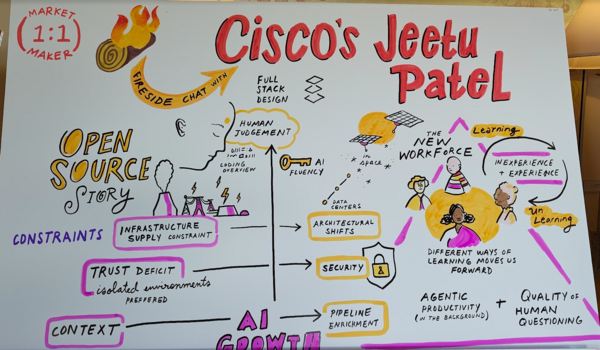 MARKET
1:1
MAKER
FIRESIDE CHAT WITH
Cisco's Jeetu
Patel
FULL
STACK
DESIGN
HUMAN
JUDGEMENT
CODING
OVERVIEW
AI
FLUENCY
IN
SPACE
DATA
CENTERS
OPEN
SOURCE
STORY
CONSTRAINTS
INFRASTRUCTURE
SUPPLY CONSTRAINT
ARCHITECTURAL
SHIFTS
TRUST DEFICIT
isolated environments
PREFERRED
SECURITY
CONTEXT
AI
GROWTH
PIPELINE
ENRICHMENT
THE
NEW
WORKFORCE
Learning
INEXPERIENCE
+ EXPERIENCE
Un Learning
DIFFERENT WAYS OF
LEARNING MOVES US
FORWARD
AGENTIC
PRODUCTIVITY
(IN THE BACKGROUND)
+
QUALITY OF
HUMAN
QUESTIONING